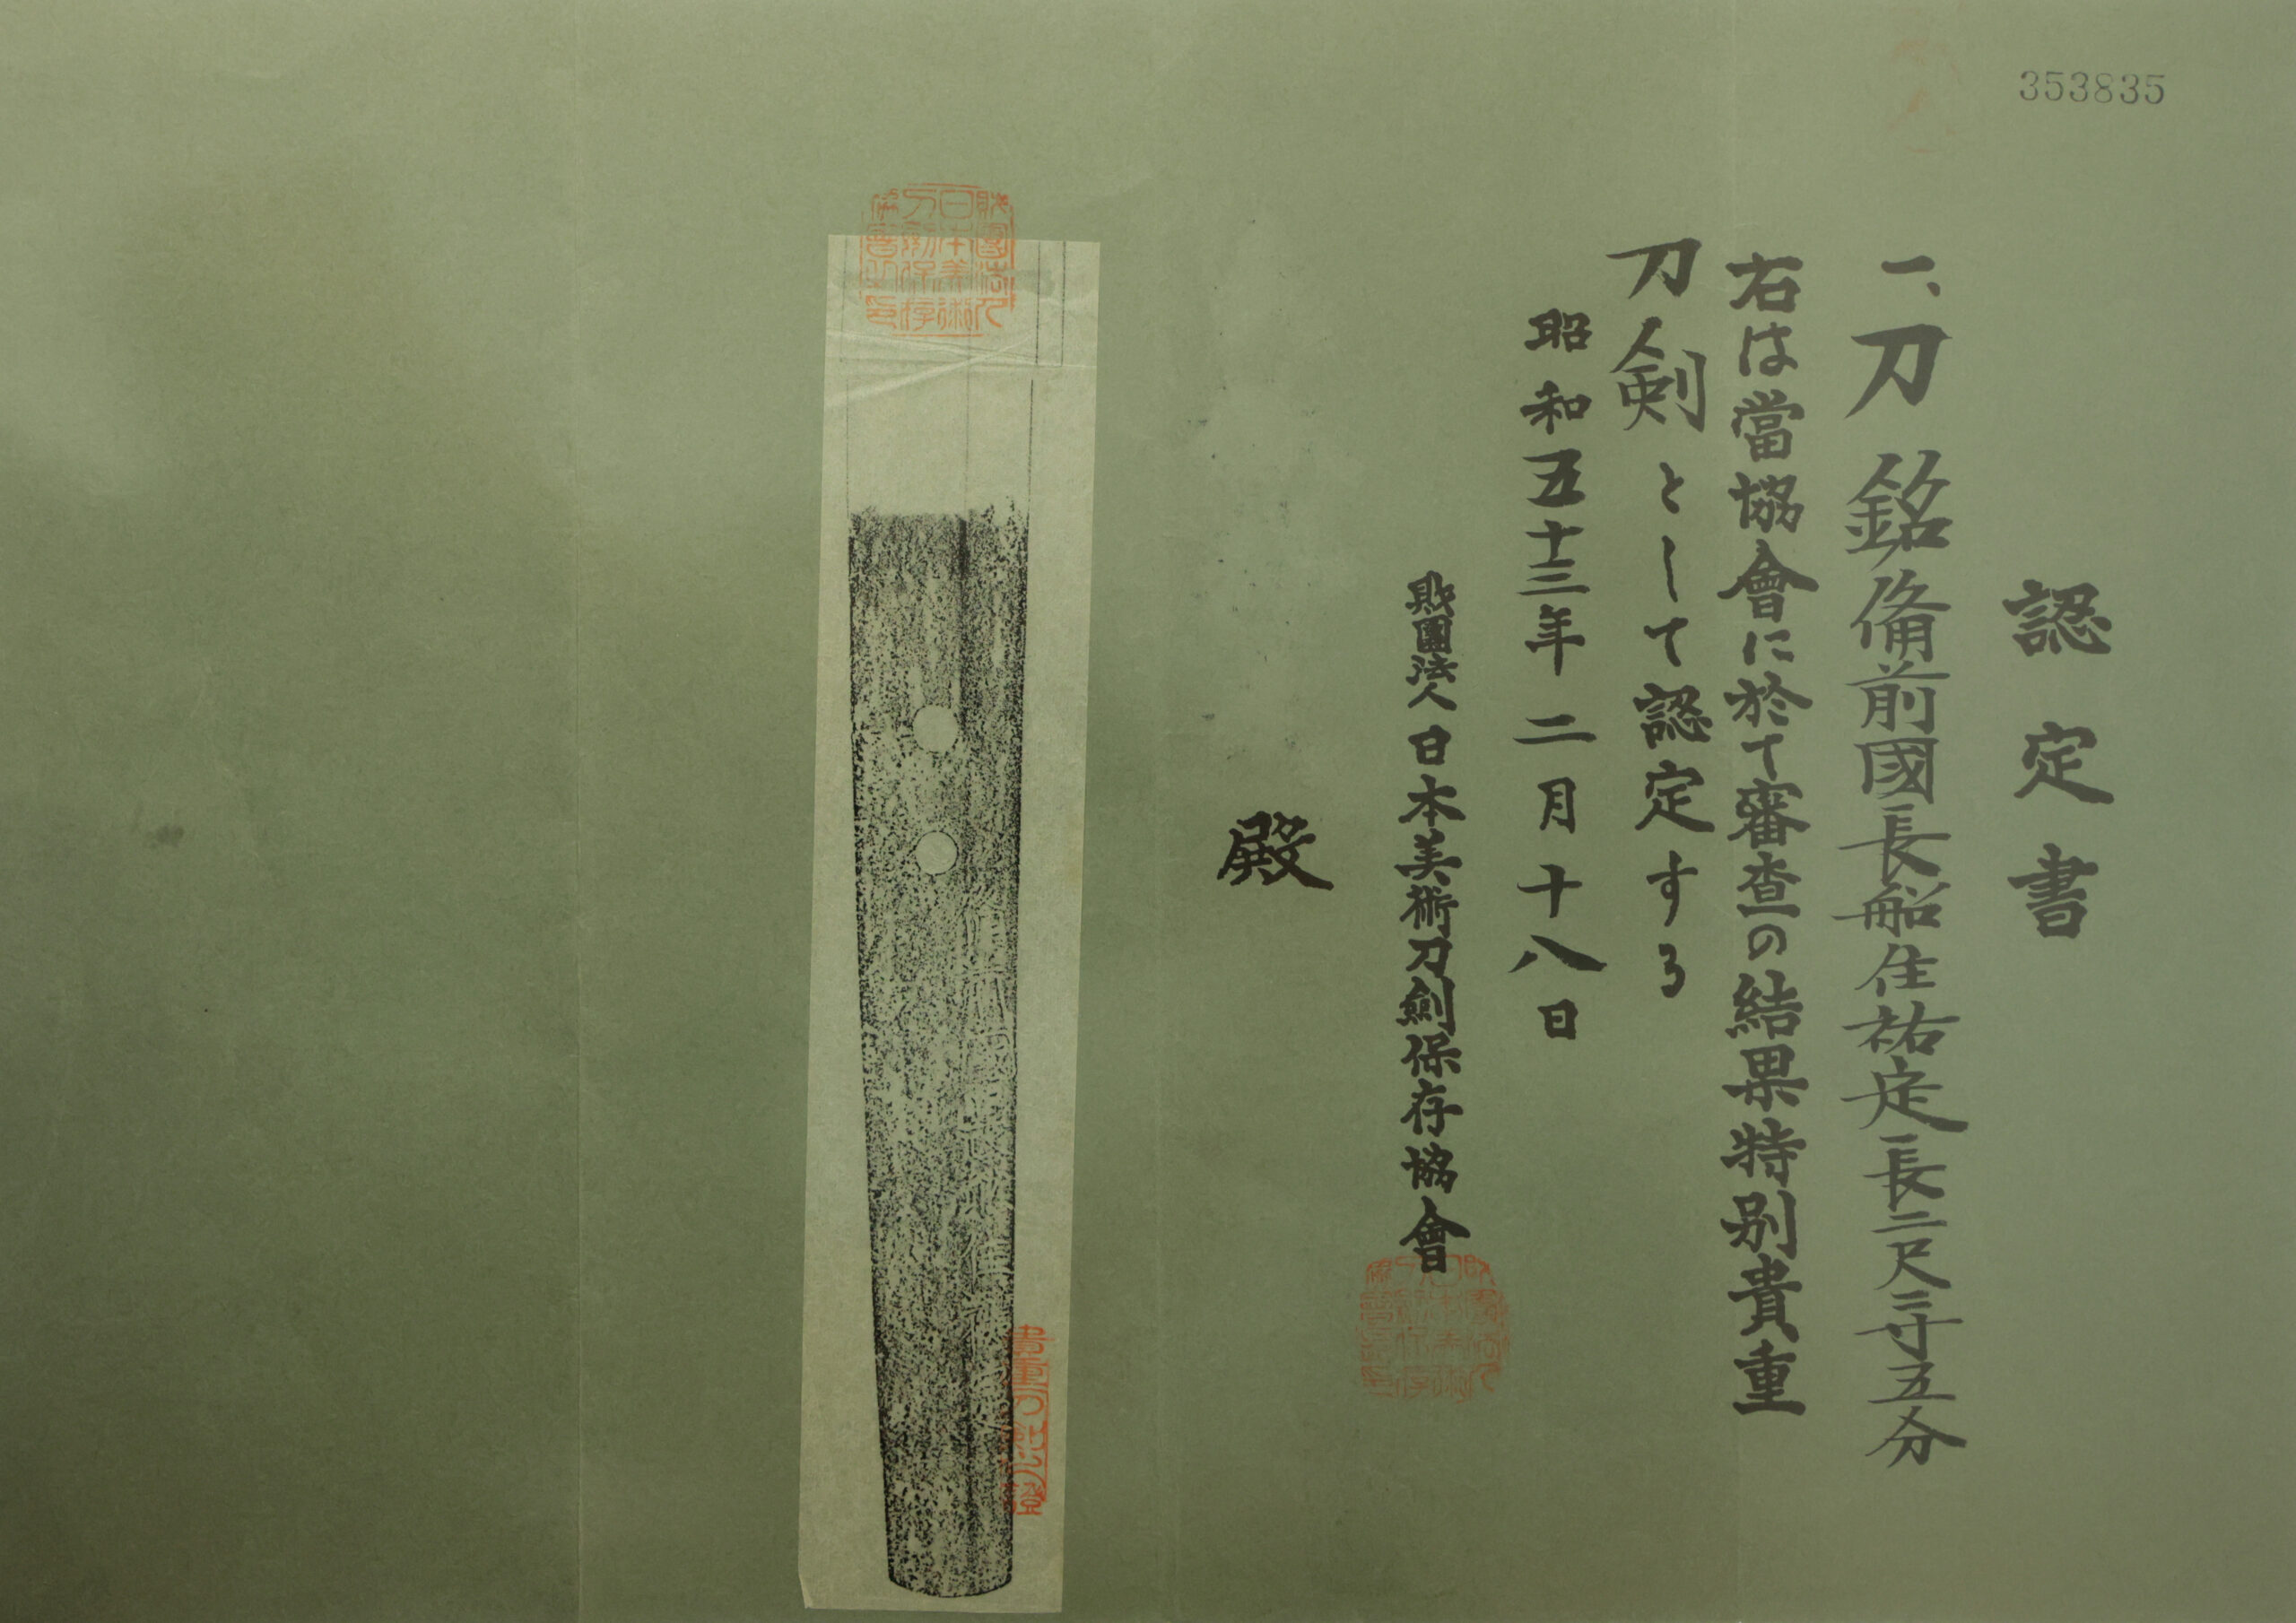 353835
認定書
一、刀 銘 備前國長船住祐定 長二尺三寸五分
右は當協會に於て審査の結果特別貴重
刀剣として認定する
昭和五十三年二月十八日
財團法人 日本美術刀劍保存協會
殿
財團法人
日本美術
刀劍保存
協會之印
貴重刀剣之證